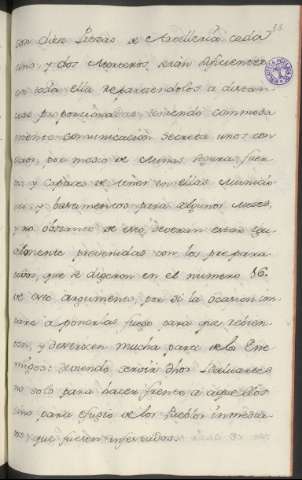 con diez Piezas de Artilleria cada
uno, y dos Morteros, seran suficientes
en toda ella repartiendolos a distan
cias proporcionadas, teniendo commoda
mente comunicacion secreta unos con
otros, por medio de Minas, seguras, fuer
tes y capaces de tener en ellas Municio
nes, y bastimentos para algunos Meses,
y no obstante de esto, deveran estar igu
almente prevenidas con los prepara
tivos, que se dixeron en el numero 86.
de este argumento, por si la ocasion in
stare a ponerlas fuego para que rebien
ten, y destrocen mucha parte de los Ene
migos: deviendo servir dhos Baluartes
no solo para hacer frente a aquellos
sino para refugio de los Pueblos inmedia
tos que fuesen imbadidos.